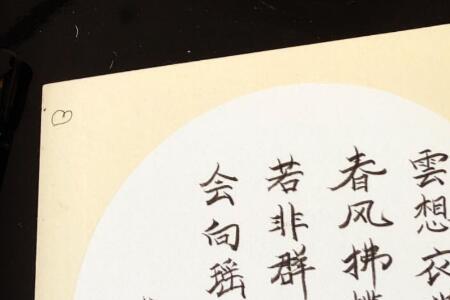 雲想衣
春风拂
若非群
会向瑶